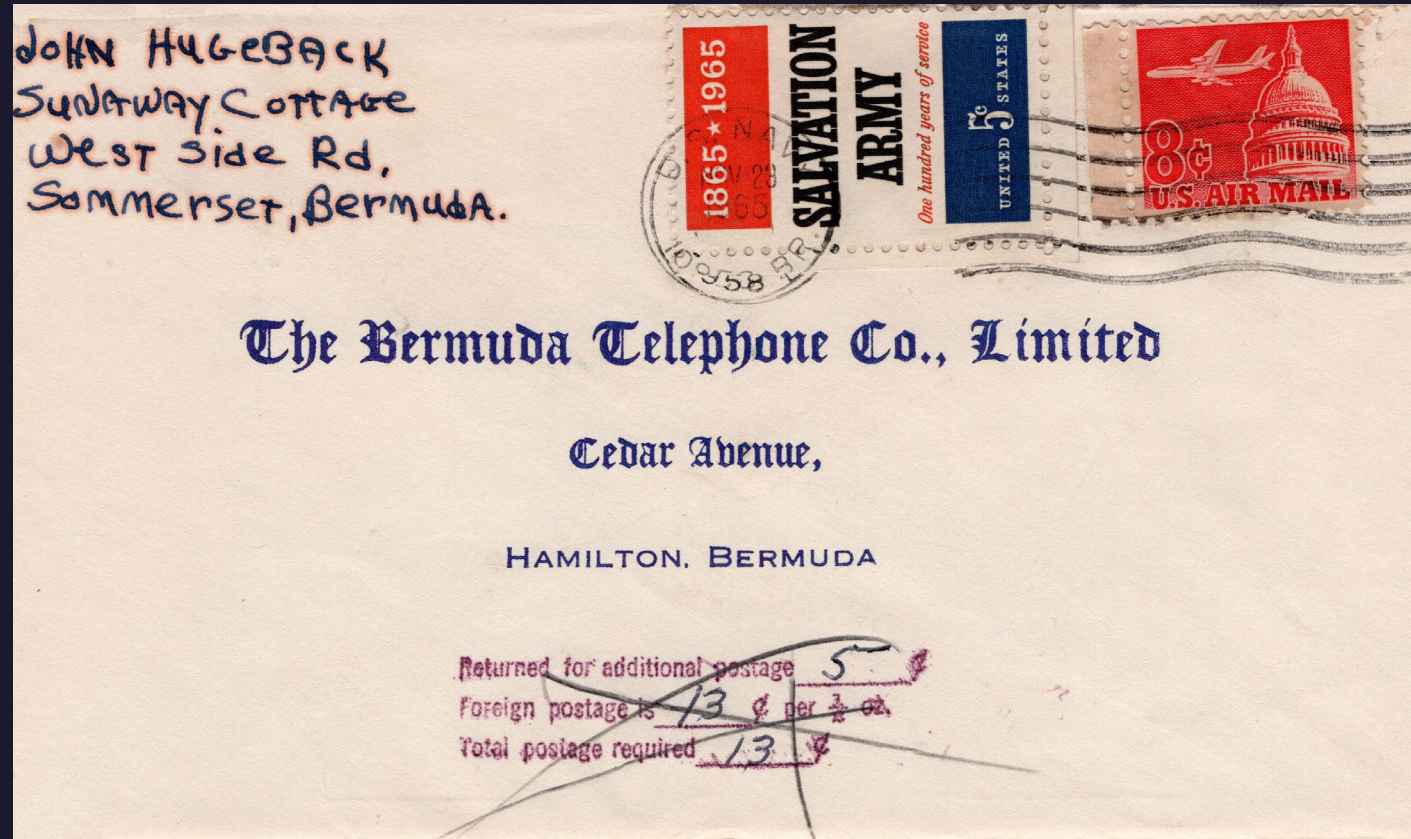 JOHN HUGEBACK
SUNAWAY COTTAGE
West Side Rd,
Sommerset, Bermuda.
1865★1965
SALVATION
ARMY
One hundred years of service
UNITED 5c STATES
8¢
U.S. AIR MAIL
10958 BR.
The Bermuda Telephone Co., Limited
Cedar Avenue,
HAMILTON, BERMUDA
Returned for additional postage 5 ¢
Foreign postage is 13 ¢ per ½ oz.
Total postage required 13 ¢